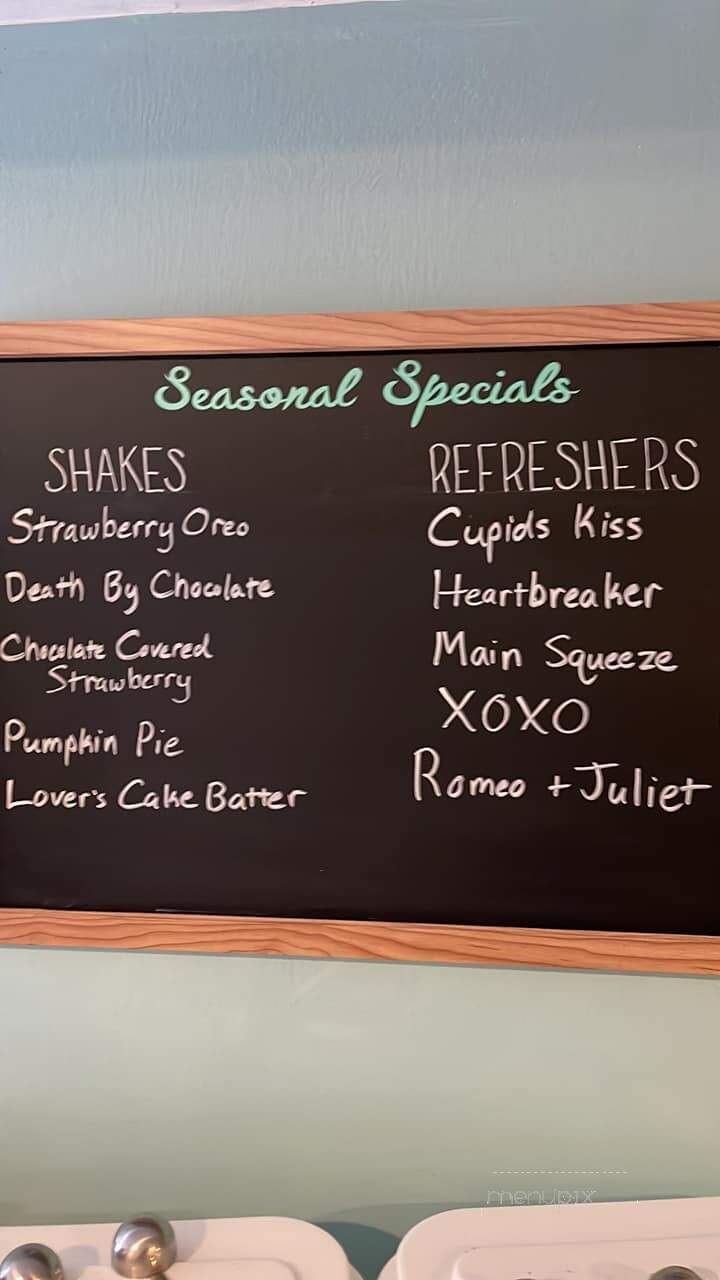 Seasonal Specials
SHAKES
Strawberry Oreo
Death By Chocolate
Chocolate Covered
Strawberry
Pumpkin Pie
Lover's Cake Batter
REFRESHERS
Cupids Kiss
Heartbreaker
Main Squeeze
XOXO
Romeo + Juliet
menupix